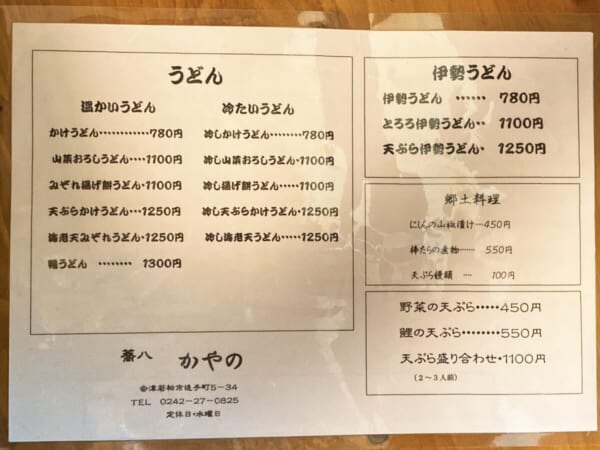 うどん
温かいうどん
かけうどん…………780円
山菜おろしうどん…1100円
みぞれ揚げ餅うどん・1100円
天ぷらかけうどん…1250円
海老天みぞれうどん・1250円
鴨うどん ……… 1300円
冷たいうどん
冷しかけうどん………780円
冷し山菜おろしうどん…1100円
冷し揚げ餅うどん……1100円
冷し天ぷらかけうどん・1250円
冷し海老天うどん……1250円
伊勢うどん
伊勢うどん …… 780円
とろろ伊勢うどん・・1100円
天ぷら伊勢うどん・1250円
郷土料理
にしんの山椒漬け…450円
棒たらの煮物…… 550円
天ぷら饅頭 …… 100円
野菜の天ぷら・・・・・450円
鯉の天ぷら・・・・・・・・550円
天ぷら盛り合わせ・1100円
(2~3人前)
蕎八 かやの
会津若松市追手町5-34
TEL 0242-27-0825
定休日・水曜日